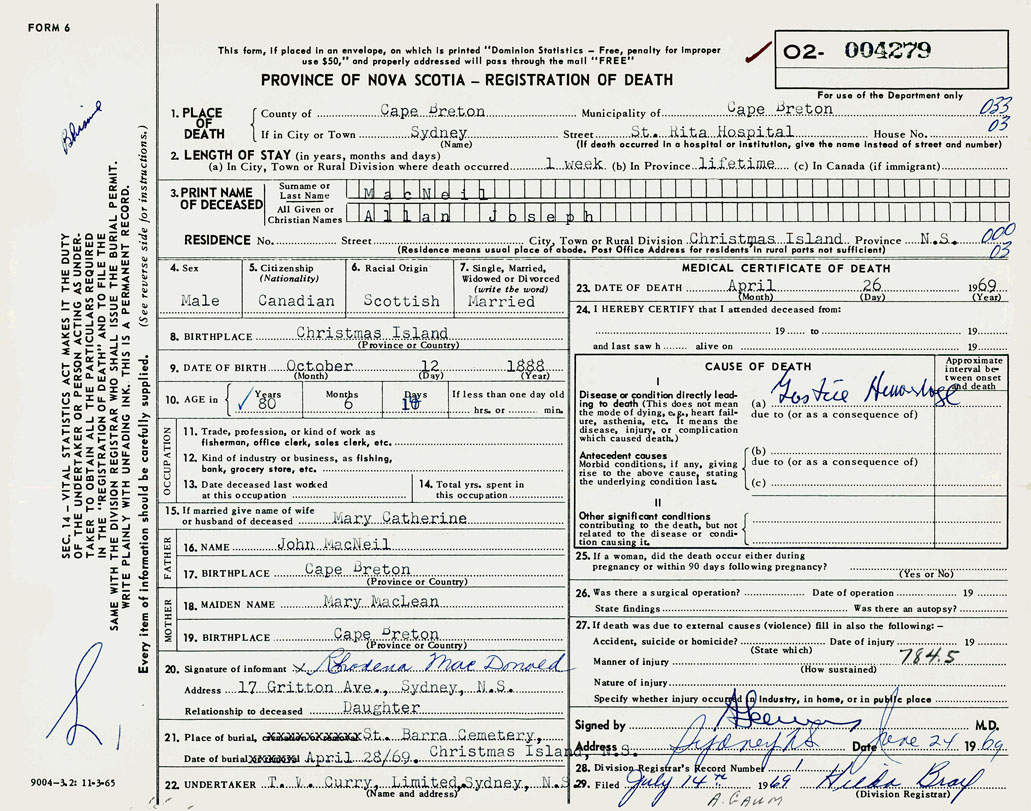 FORM 6
This form, if placed in an envelope, on which is printed "Dominion Statistics – Free, penalty for improper
use $50," and properly addressed will pass through the mail "FREE"
PROVINCE OF NOVA SCOTIA – REGISTRATION OF DEATH
02- 004279
For use of the Department only
1. PLACE OF DEATH
County of Cape Breton Municipality of Cape Breton 033
If in City or Town Sydney Street St. Rita Hospital House No. 03
(Name) (If death occurred in a hospital or institution, give the name instead of street and number)
2. LENGTH OF STAY (in years, months and days)
(a) In City, Town or Rural Division where death occurred 1 week (b) In Province lifetime (c) In Canada (if immigrant)
3. PRINT NAME OF DECEASED
Surname or Last Name MacNeil
All Given or Christian Names Allan Joseph
RESIDENCE No. Street City, Town or Rural Division Christmas Island Province N.S. 000
(Residence means usual place of abode. Post Office Address for residents in rural parts not sufficient) 03
4. Sex
Male
5. Citizenship
(Nationality)
Canadian
6. Racial Origin
Scottish
7. Single, Married,
Widowed or Divorced
(write the word)
Married
8. BIRTHPLACE Christmas Island
(Province or Country)
9. DATE OF BIRTH October 12 1888
(Month) (Day) (Year)
10. AGE in Years Months Days If less than one day old
80 6 hrs. or min.
OCCUPATION
11. Trade, profession, or kind of work as
fisherman, office clerk, sales clerk, etc.
12. Kind of industry or business, as fishing,
bank, grocery store, etc.
13. Date deceased last worked
at this occupation
14. Total yrs. spent in
this occupation
15. If married give name of wife
or husband of deceased Mary Catherine
FATHER
16. NAME John MacNeil
17. BIRTHPLACE Cape Breton
(Province or Country)
MOTHER
18. MAIDEN NAME Mary MacLean
19. BIRTHPLACE Cape Breton
(Province or Country)
20. Signature of informant x Rhodena MacDonald
Address 17 Gritton Ave., Sydney, N.S.
Relationship to deceased Daughter
21. Place of burial, St. Barra Cemetery,
Christmas Island, N.S.
Date of burial April 28/69.
22. UNDERTAKER T. W. Curry, Limited, Sydney, N.S.
(Name and address)
MEDICAL CERTIFICATE OF DEATH
23. DATE OF DEATH April 26 1969
(Month) (Day) (Year)
24. I HEREBY CERTIFY that I attended deceased from:
19 to 19
and last saw h alive on 19
CAUSE OF DEATH
Approximate
interval be-
tween onset
and death
I
Disease or condition directly lead-
ing to death (This does not mean
the mode of dying, e.g., heart fail-
ure, asthenia, etc. It means the
disease, injury, or complication
which caused death.)
(a) Gastric Hemorrhage
due to (or as a consequence of)
Antecedent causes
Morbid conditions, if any, giving
rise to the above cause, stating
the underlying condition last.
(b)
due to (or as a consequence of)
(c)
II
Other significant conditions
contributing to the death, but not
related to the disease or condi-
tion causing it.
25. If a woman, did the death occur either during
pregnancy or within 90 days following pregnancy?
(Yes or No)
26. Was there a surgical operation? Date of operation 19
State findings Was there an autopsy?
27. If death was due to external causes (violence) fill in also the following:–
Accident, suicide or homicide? Date of injury 19
(State which)
784.5
Manner of injury
(How sustained)
Nature of injury
Specify whether injury occurred in industry, in home, or in public place
Signed by M.D.
Address Sydney NS Date June 24 1969
28. Division Registrar's Record Number
29. Filed July 14th 1969 Hilda Bray
(Division Registrar)
A. GAUM
SEC. 14 – VITAL STATISTICS ACT MAKES IT THE DUTY
OF THE UNDERTAKER OR PERSON ACTING AS UNDER-
TAKER TO OBTAIN ALL THE PARTICULARS REQUIRED
IN THE "REGISTRATION OF DEATH" AND TO FILE THE
SAME WITH THE DIVISION REGISTRAR WHO SHALL ISSUE THE BURIAL PERMIT.
WRITE PLAINLY WITH UNFADING INK. THIS IS A PERMANENT RECORD.
Every item of information should be carefully supplied. (See reverse side for instructions.)
9004–3.2: 11-3-65